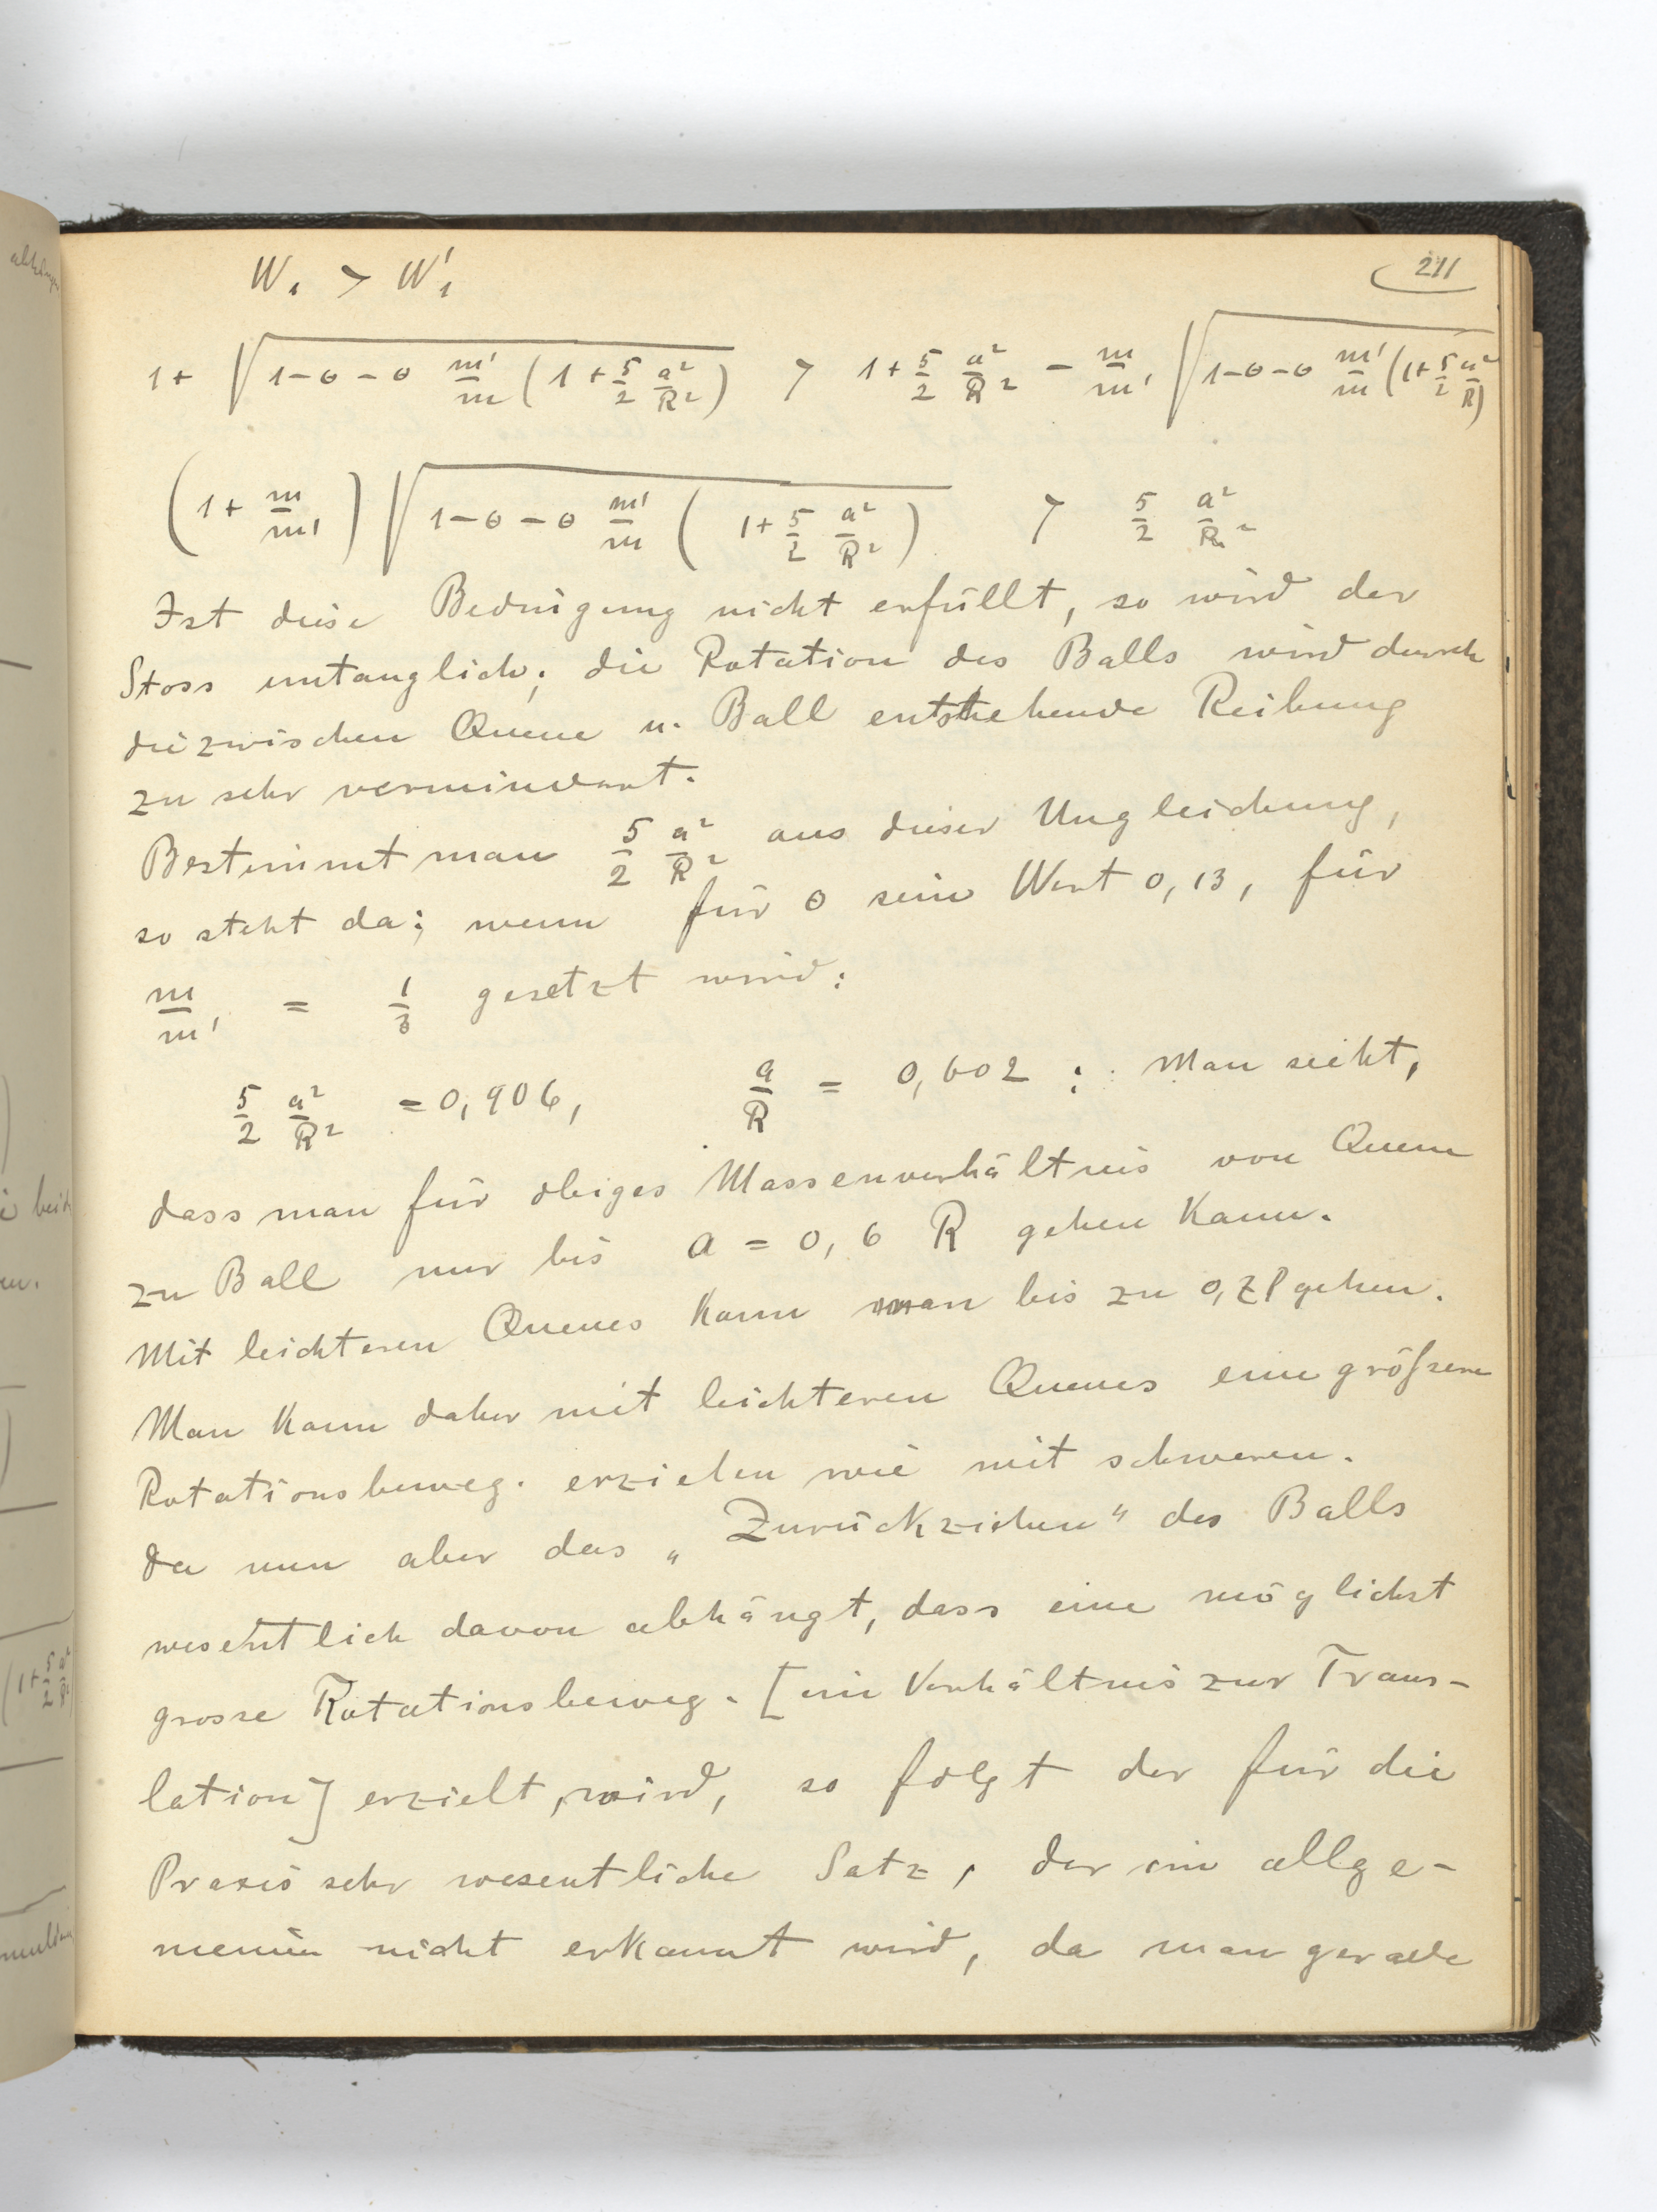 211
W₁ > W'₁
1 + √(1-θ-θ m'/m (1 + 5/2 a²/R²)) > 1 + 5/2 a²/R² - m/m' √(1-θ-θ m'/m (1 + 5/2 a²/R))
(1 + m/m') √(1-θ-θ m'/m (1 + 5/2 a²/R²)) > 5/2 a²/R²
Ist diese Bedingung nicht erfüllt, so wird der
Stoss untauglich; die Rotation des Balls wird durch
die zwischen Queue u. Ball entstehende Reibung
zu sehr vermindert.
Bestimmt man 5/2 a²/R² aus dieser Ungleichung,
so steht da; wenn für θ sein Wert 0,13, für
m/m' = 1/3 gesetzt wird:
5/2 a²/R² = 0,906, a/R = 0,602 ; Man sieht,
dass man für obiges Massenverhältnis von Queue
zu Ball nur bis a = 0,6 R gehen kann.
Mit leichteren Queues kann man bis zu 0,7R gehen.
Man kann daher mit leichteren Queues eine größere
Rotationsbeweg. erzielen wie mit schweren.
Da nun aber das „Zurückziehen" des Balls
wesentlich davon abhängt, dass eine möglichst
grosse Rotationsbeweg. [im Verhältnis zur Trans-
lation] erzielt, wird, so folgt der für die
Praxis sehr wesentliche Satz, der im allge-
meinen nicht erkannt wird, da man gerade